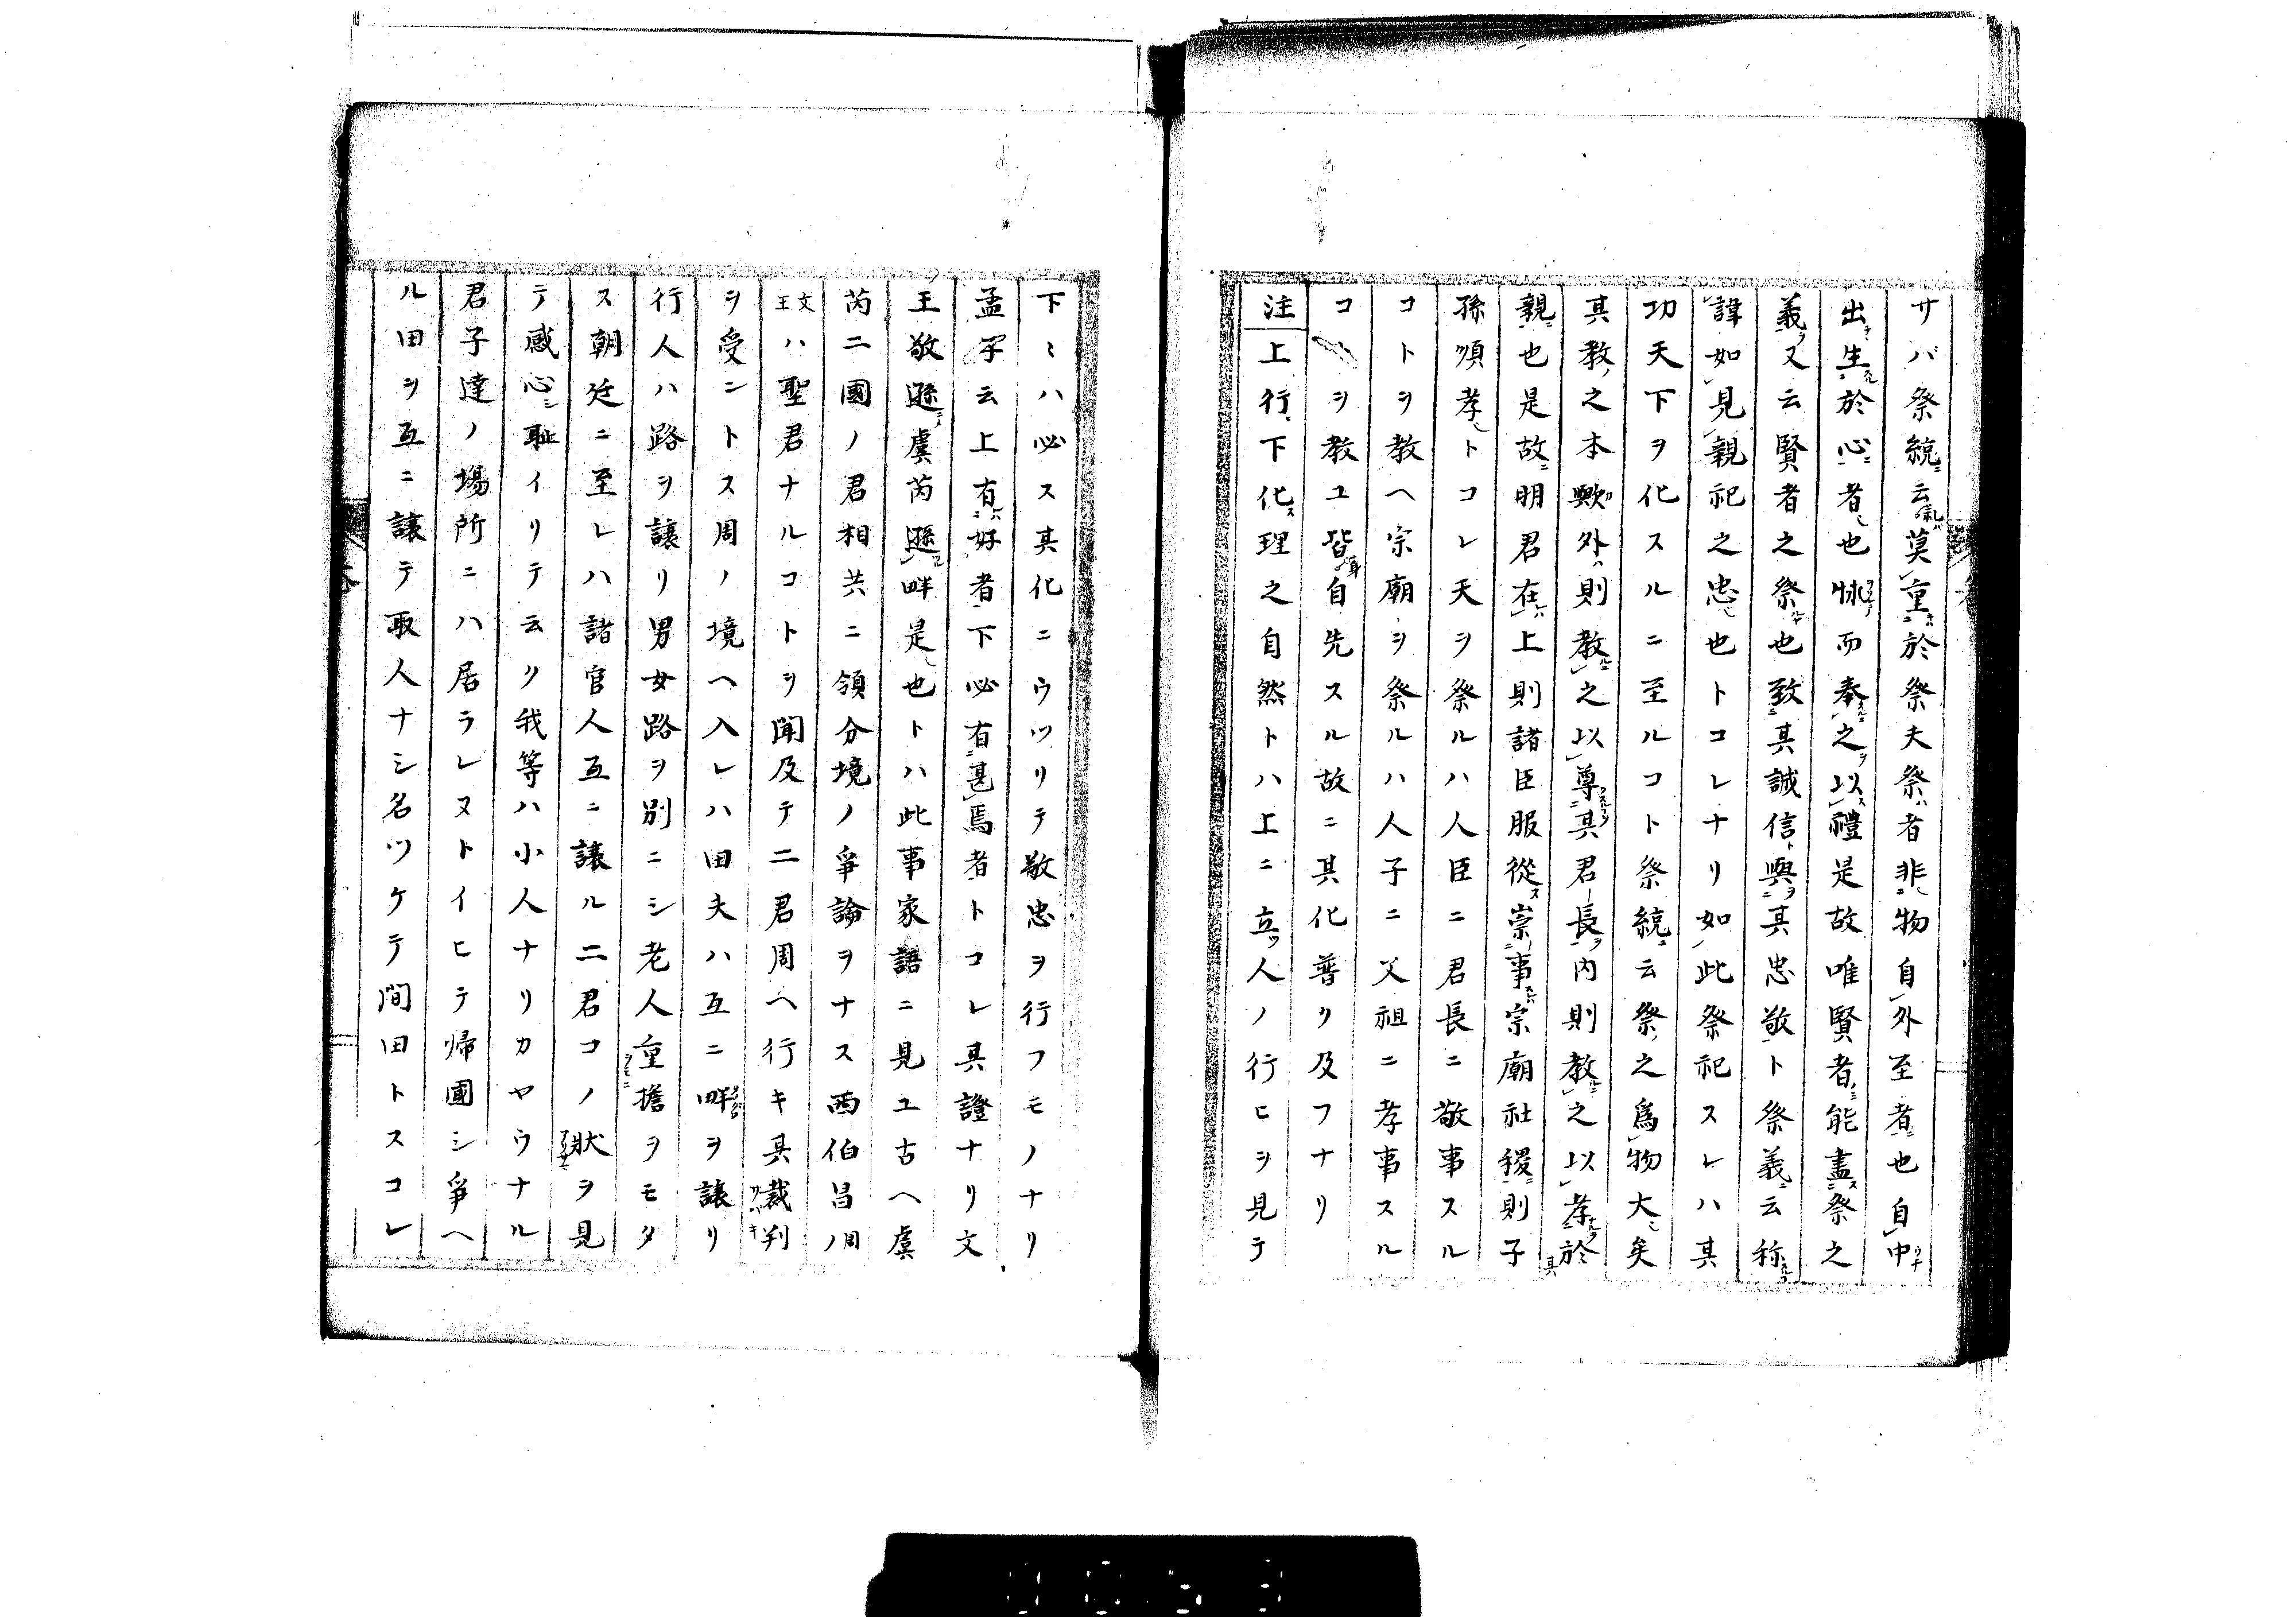 サバ祭統云禮莫重於祭夫祭者非物自外至者也自中
出生於心者也怵而奉之以禮是故唯賢者能盡祭之
義又云賢者之祭也致其誠信與其忠敬ト祭義云称
諱如見親祀之忠也トコレナリ如此祭祀スレハ其
功天下ヲ化スルニ至ルコト祭統云祭之爲物大矣
其教之本歟外則教之以尊其君長内則教之以孝於其
親也是故明君在上則諸臣服從崇事宗廟社稷則子
孫順孝トコレ天ヲ祭ルハ人臣ニ君長ニ敬事スル
コトヲ教ヘ宗廟ヲ祭ルハ人子ニ父祖ニ孝事スル
コヲ教ユ皆身自先スル故ニ其化普リ及フナリ
注上行下化理之自然トハ上ニ立人ノ行ヒヲ見テ
下〻ハ必ス其化ニウツリテ敬忠ヲ行フモノナリ
孟子云上有好者下必有甚焉者トコレ其證ナリ文
王敬遜虞芮遜畔是也トハ此事家語ニ見ユ古ヘ虞
芮二國ノ君相共ニ領分境ノ爭論ヲナス西伯昌周ノ
文王ハ聖君ナルコトヲ聞及テ二君周ヘ行キ其裁判
ヲ受ントス周ノ境ヘ入レハ田夫ハ互ニ畔ヲ讓リ
行人ハ路ヲ讓リ男女路ヲ別ニシ老人重擔ヲモタ
ス朝廷ニ至レハ諸官人互ニ讓ル二君コノ狀ヲ見
テ感心シ恥イリテ云ク我等ハ小人ナリカヤウナル
君子達ノ場所ニハ居ラレヌトイヒテ帰國シ爭ヘ
ル田ヲ互ニ讓テ取人ナシ名ツケテ間田トスコレ